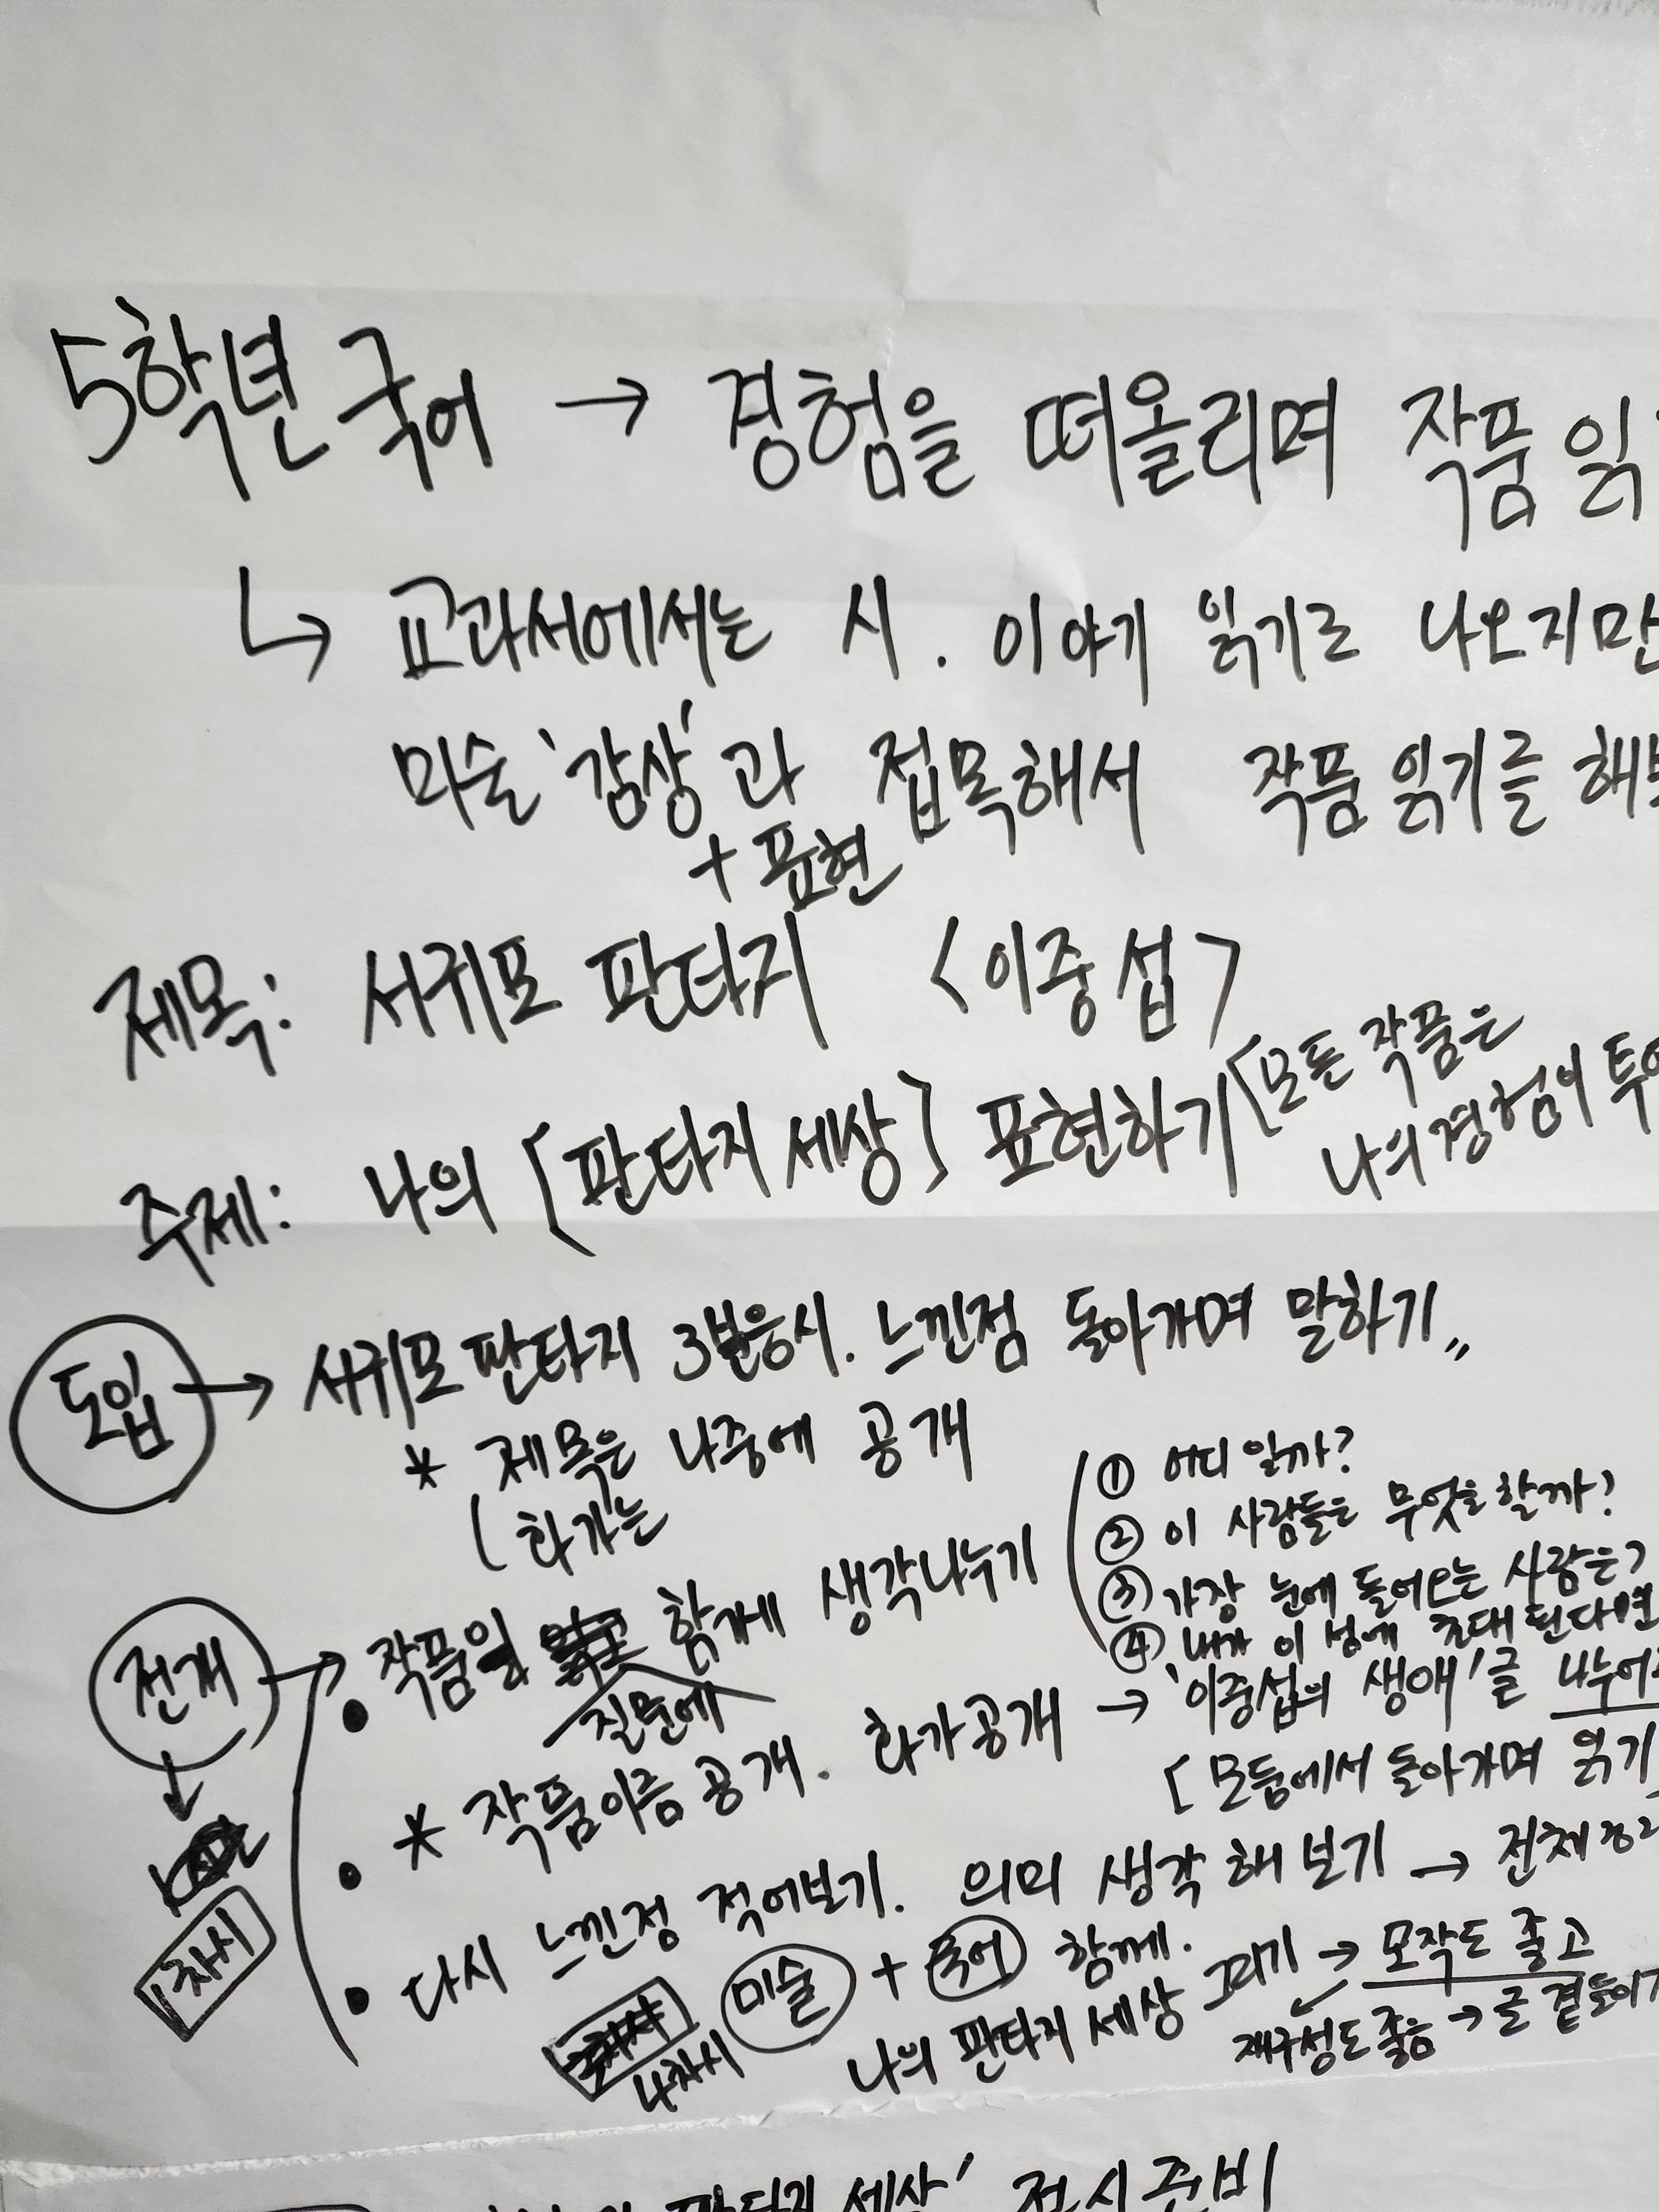 5학년 국어 → 경험을 떠올리며 작품 읽
↳ 교과서에서는 시. 이야기 읽기로 나오지만
미술 '감상'과 접목해서 작품 읽기를
+ 표현
제목: 서귀포 판타지 <이중섭>
주제: 나의 [판타지 세상] 표현하기 [모든 작품은
나의 경험이
도입 → 서귀포 판타지 3분응시. 느낀점 돌아가며 말하기,,
* 제목은 나중에 공개
( 화가는
① 어디일까?
② 이 사람들은 무엇을 할까?
③ 가장 눈에 들어오는 사람은?
④ 내가 이 섬에 초대된다면
전개 → • 작품을 함께 생각나누기
질문에
* 작품이름 공개. 화가공개 → '이중섭의 생애' 글 나누어
[모둠에서 돌아가며 읽기]
1차시
• 다시 느낀점 적어보기. 의미 생각해보기 → 전체
4차시 미술 + 국어 함께.
나의 판타지 세상 그리기 → 모작도 좋고
재구성도 좋음 → 글 곁들이기
판타지 세상' 전시 준비